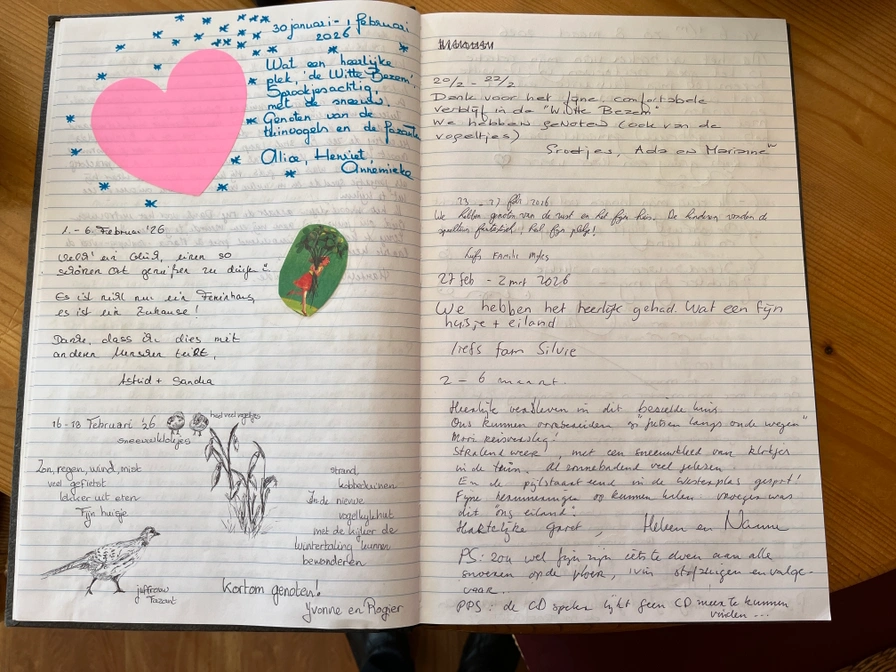 30 januari - 1 februari
2026
Wat een heerlijke
plek, 'de Witte Bezem'.
Sprookjesachtig,
met de sneeuw.
Genoten van de
tuinvogels en de Fazanten
Alice, Henriet,
Annemieke
1. - 6. Februar '26
Welch' ein Glück, einen so
schönen Ort genießen zu dürfen!
Es ist nicht nur ein Ferienhaus,
es ist ein Zuhause!
Danke, dass ihr dies mit
anderen Menschen teilt,
Astrid + Sandra
16 - 18 Februari '26
heel veel vogeltjes
sneeuwklokjes
Zon, regen, wind, mist
veel gefietst
lekker uit eten
Fijn huisje
strand,
kobbeduinen
In de nieuwe
vogelkijkhut
met de kijker de
wintertaling kunnen
bewonderen
juffrouw
Fazant
Kortom genoten!
Yvonne en Rogier
20/2 - 22/2
Dank voor het fijne, comfortabele
verblijf in de "Witte Bezem"
We hebben genoten (ook van de
vogeltjes)
Groetjes, Ada en Marianne
23 - 27 feb 2026
We hebben genoten van de rust en het fijne huis. De kinderen vonden de
spullen fantastisch! Heel fijn plekje!
Liefs Familie
27 feb - 2 mrt 2026
We hebben het heerlijk gehad. Wat een fijn
huisje + eiland
liefs fam Silvie
2 - 6 maart.
Heerlijk verbleven in dit bezielde huis
Ons kunnen voorbereiden op "fietsen langs oude wegen"
Mooi reisverslag!
Stralend weer, met een sneeuwkleed van klokjes
in de tuin. Al zonnebadend veel gelezen.
En de pijlstaart eend in de Westerplas gespot!
Fijne herinneringen op kunnen halen vanwege was
dit "ons eiland".
Hartelijke groet, Heleen en Nanne
PS: zou wel fijn zijn iets te doen aan alle
snoeren op de vloer, ivm stofzuigen en valge-
vaar.
PPS: de CD speler lijkt geen CD meer te kunnen
vinden ...